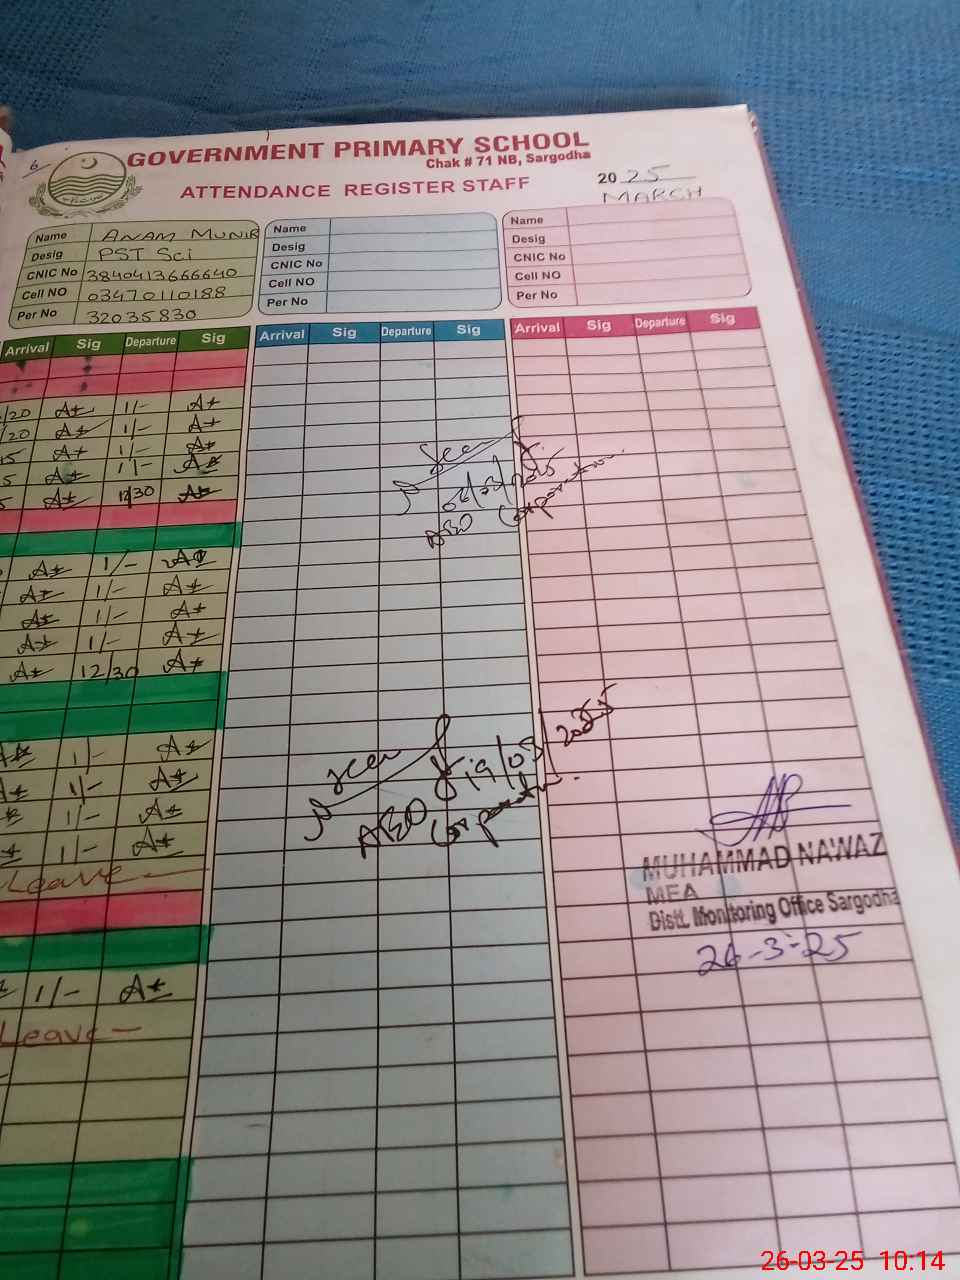 6
GOVERNMENT PRIMARY SCHOOL
Chak # 71 NB, Sargodha
ATTENDANCE REGISTER STAFF
2025
MARCH
Name ANAM MUNIR
Desig PST Sci
CNIC No 3840413666640
Cell NO 03470110188
Per No 32035830
Name
Desig
CNIC No
Cell NO
Per No
Name
Desig
CNIC No
Cell NO
Per No
Arrival Sig Departure Sig Arrival Sig Departure Sig Arrival Sig Departure Sig
/20 A* 1/- A*
/20 A* 1/- A*
15 A* 1/- A*
5 A* 1/- A*
5 A* 12/30 A*
A* 1/- A*
A* 1/- A*
A* 1/- A*
A* 1/- A*
A* 12/30 A*
A* 1/- A*
A* 1/- A*
1/- A*
1/- A*
Leave
1/- A*
Leave
Seen
AEO
seen
19/03/2025
AEO
MUHAMMAD NAWAZ
MEA
Distt. Monitoring Office Sargodha
26-3-25
26-03-25 10.14